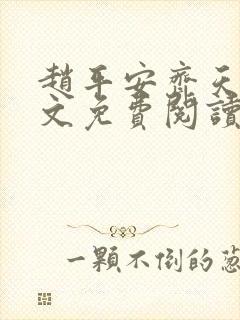 趙平安齊天
文免費閱讀
一顆不倒的蔥